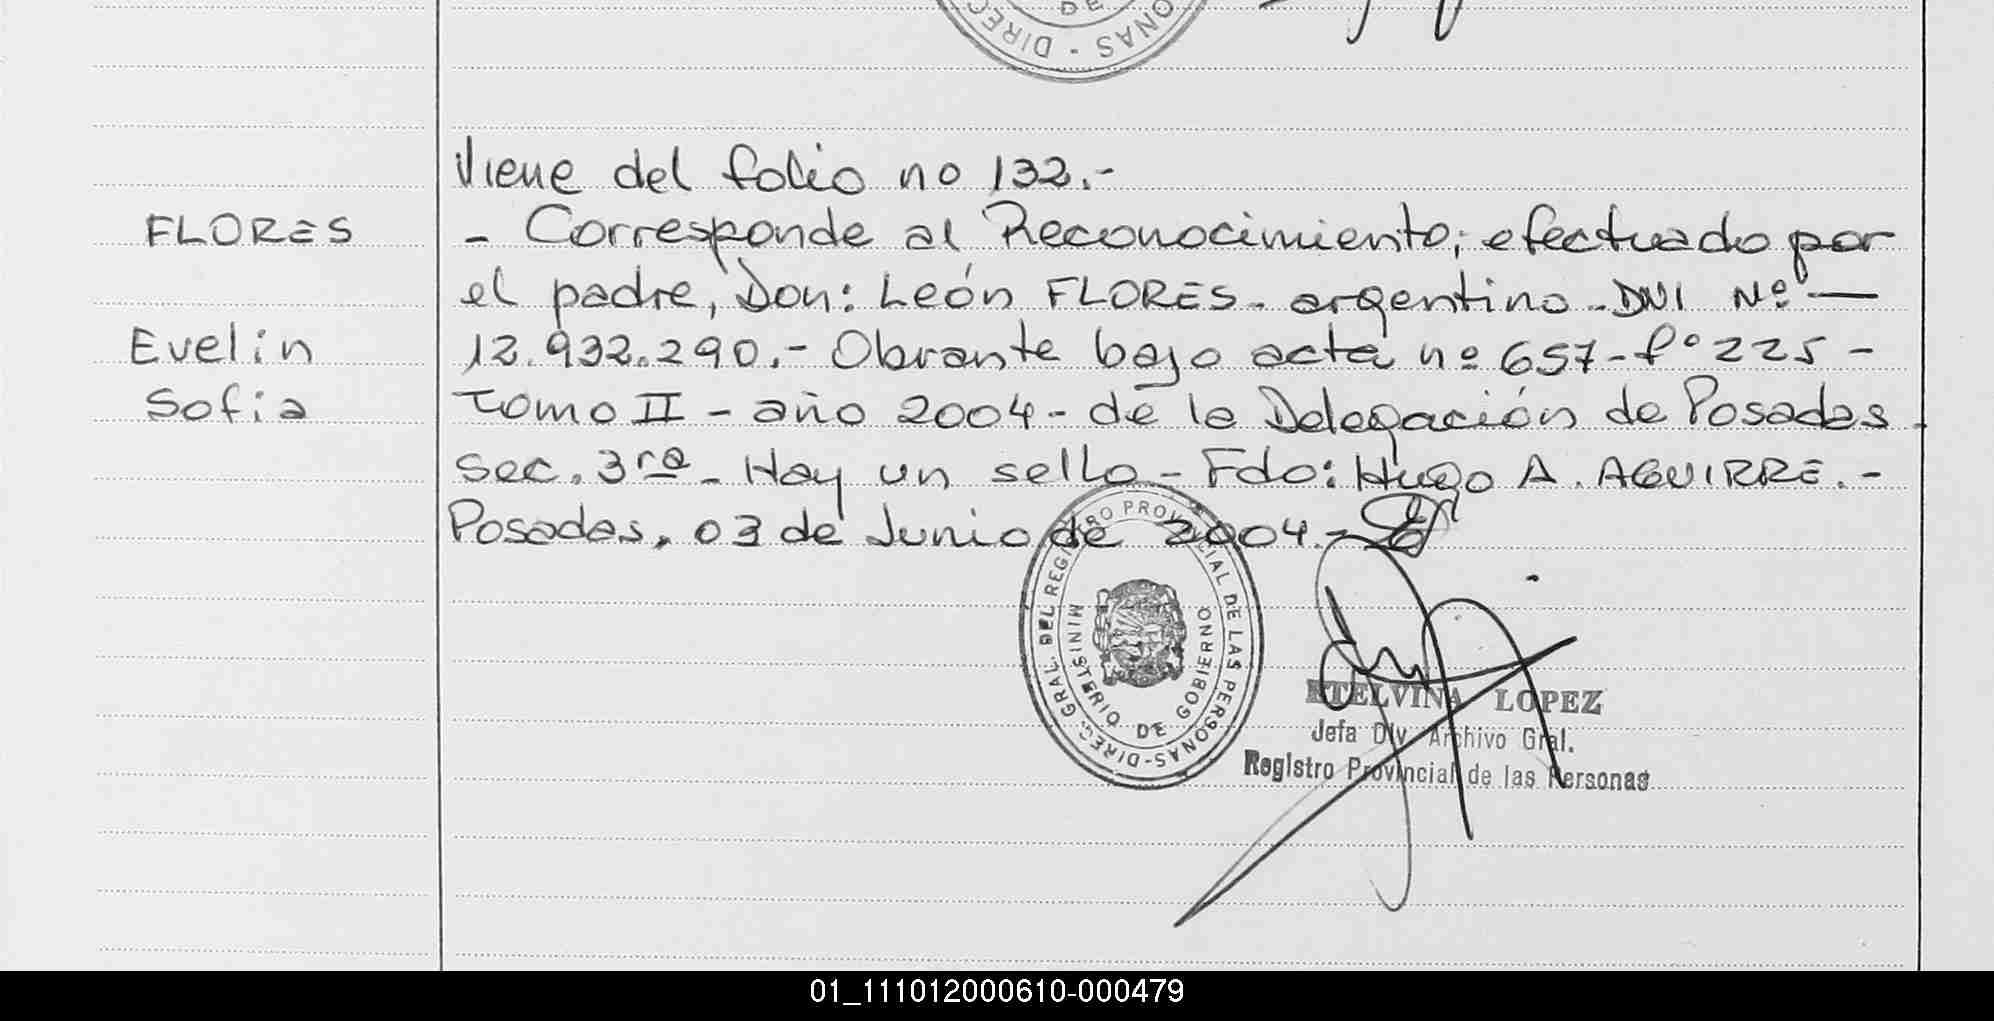 DIREC
DE
SONAS
Viene del folio no 132.-
FLORES
- Corresponde al Reconocimiento; efectuado por
el padre, Don: León FLORES - argentino - DNI Nº —
Evelin
12.932.290.- Obrante bajo acta nº 657 - fº 225 -
Sofia
Tomo II - año 2004 - de la Delegación de Posadas -
Sec. 3ra - Hay un sello - Fdo: Hugo A. AGUIRRE. -
Posadas, 03 de Junio de 2004.-
DIREC. GRAL. DEL REGISTRO PROVINCIAL DE LAS PERSONAS -
MINISTERIO DE GOBIERNO
ETELVINA LOPEZ
Jefa Div. Archivo Gral.
Registro Provincial de las Personas
01_111012000610-000479